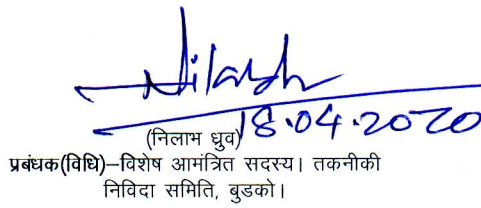 Nilabh
18.04.2020
(निलाभ ध्रुव)
प्रबंधक(विधि)–विशेष आमंत्रित सदस्य। तकनीकी
निविदा समिति, बुडको।